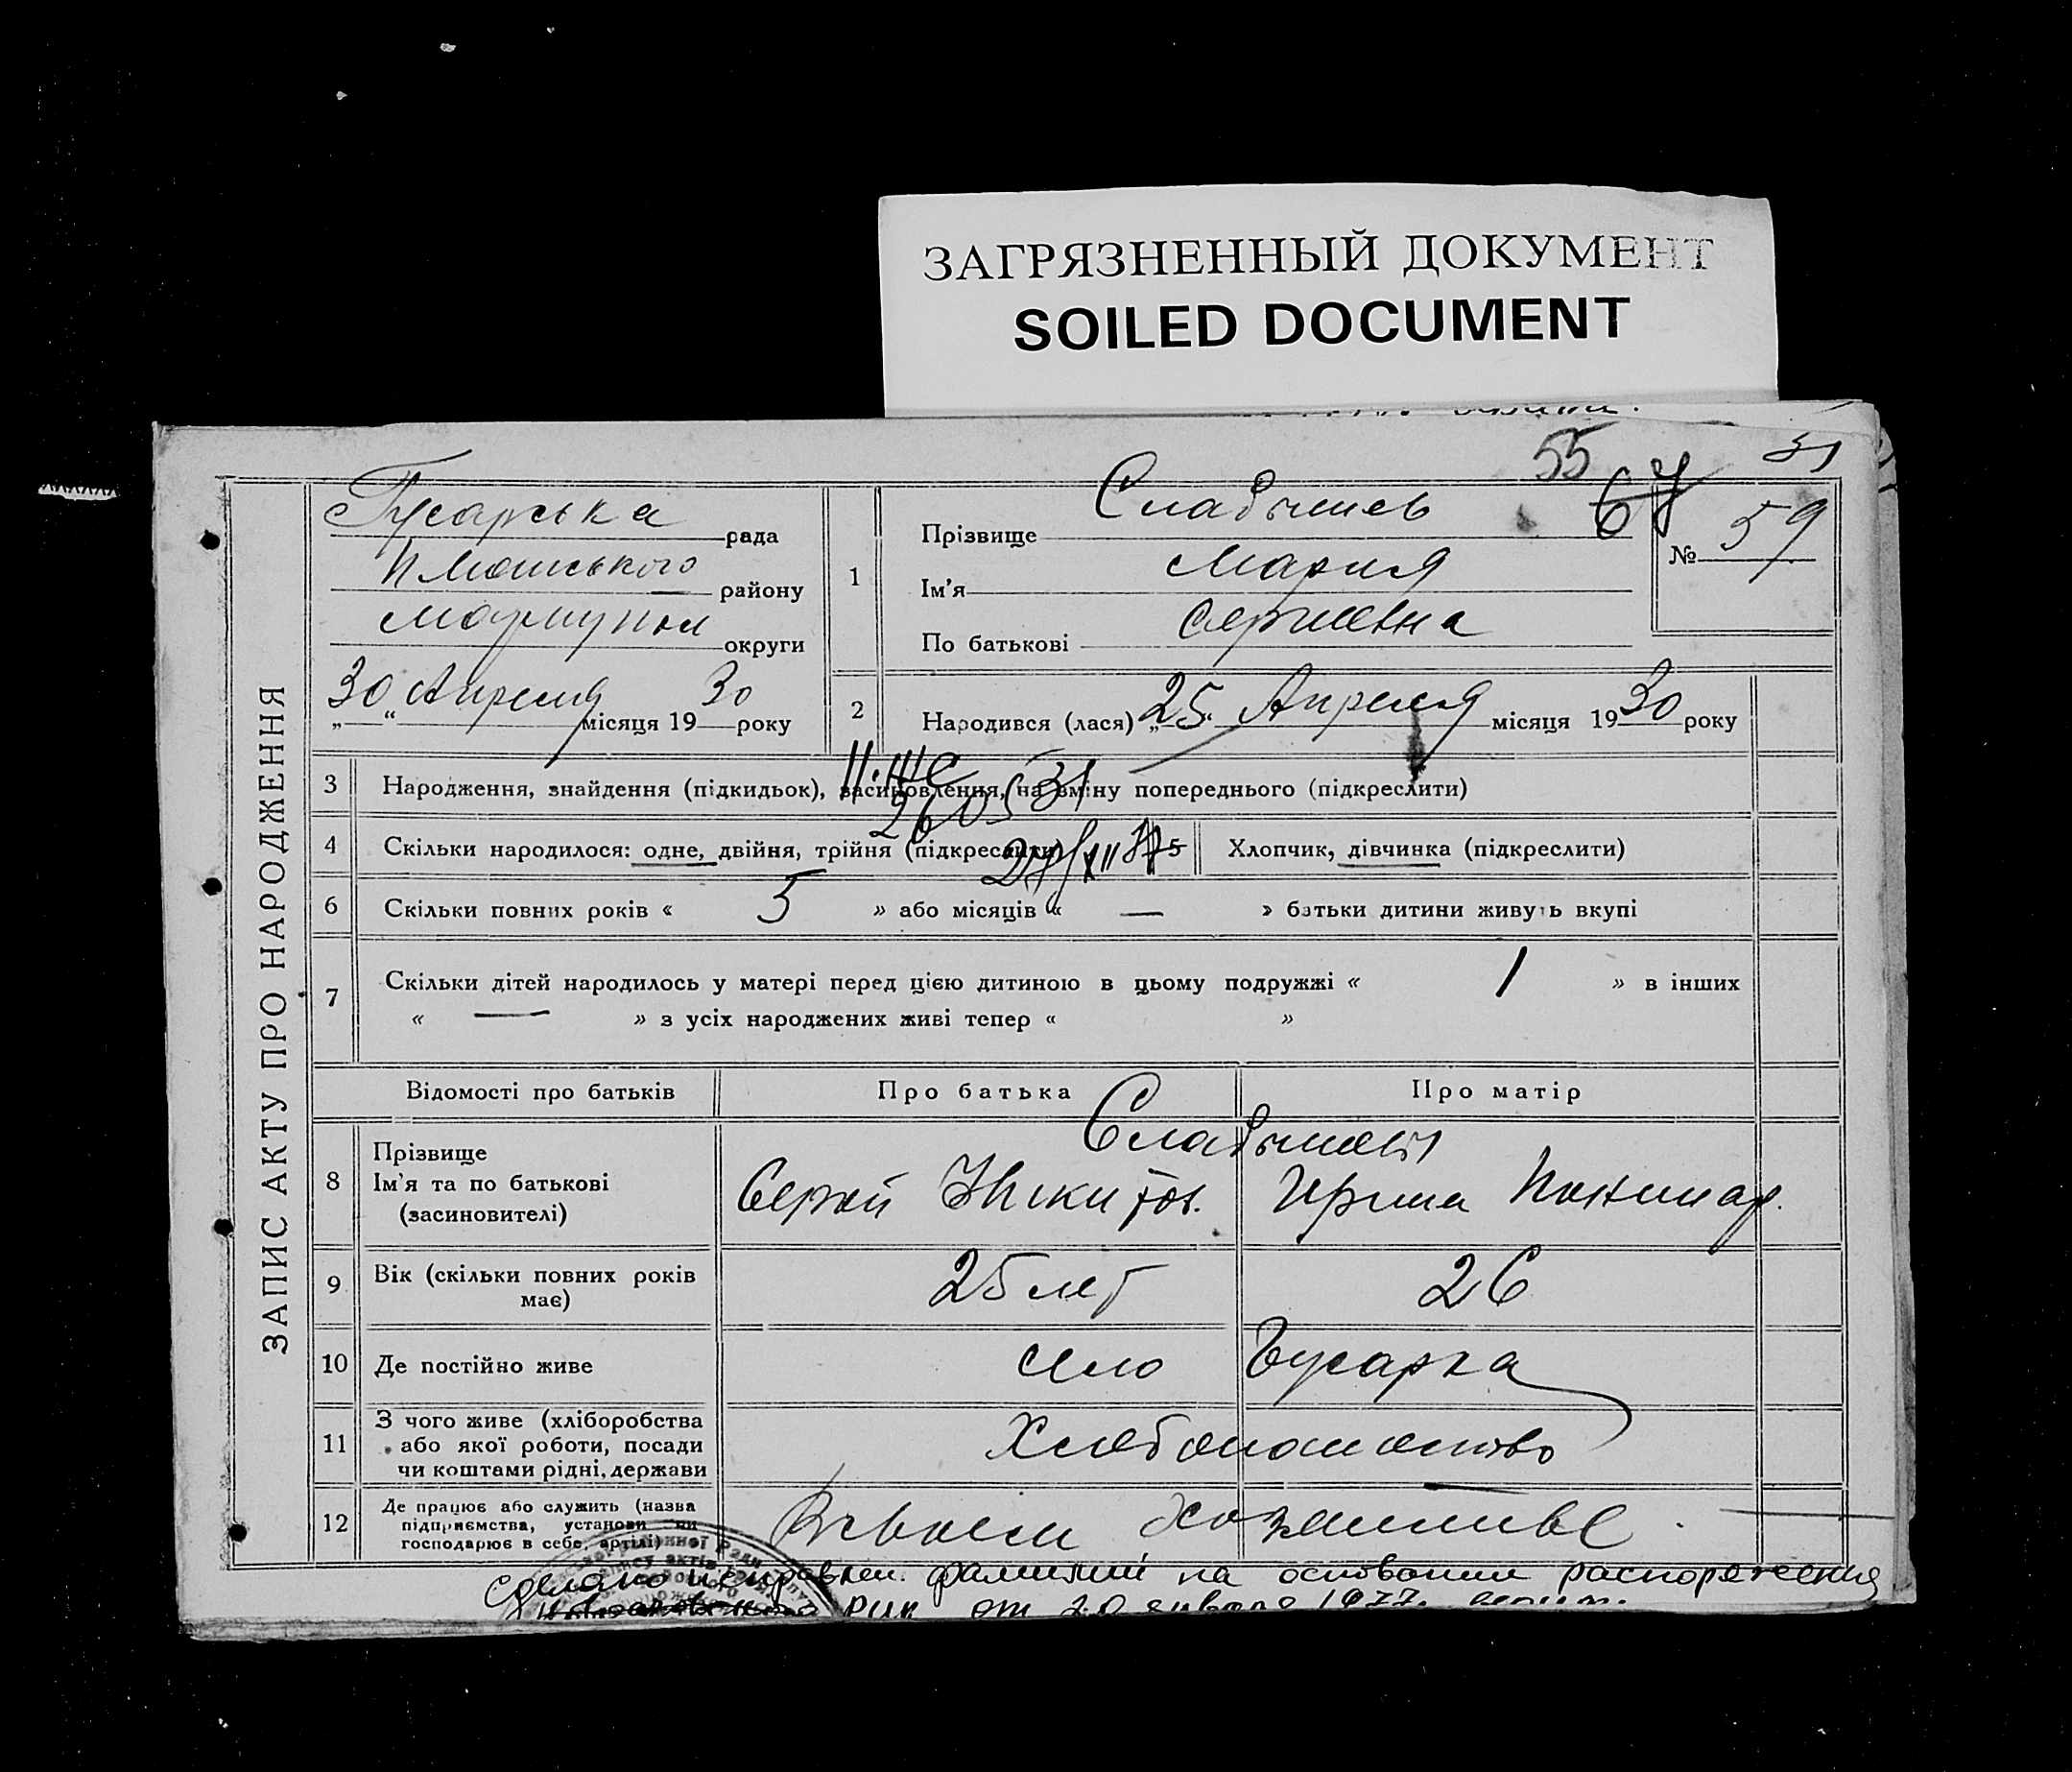 ЗАГРЯЗНЕННЫЙ ДОКУМЕНТ
SOILED DOCUMENT
55
67
31
ЗАПИС АКТУ ПРО НАРОДЖЕННЯ
Гусарська рада
району
Мариупол округи
„30“ Апреля місяця 1930 року
1
Прізвище
Ім'я Мария
По батькові Сергиевна
№ 59
2
Народився (лася) „25. Апреля місяця 1930 року
3
Народження, знайдення (підкидьок), засиновлення, на зміну попереднього (підкреслити)
4
Скільки народилося: одне, двійня, трійня (підкреслити)
5
Хлопчик, дівчинка (підкреслити)
6
Скільки повних років « 5 » або місяців « — » батьки дитини живуть вкупі
7
Скільки дітей народилось у матері перед цією дитиною в цьому подружжі « 1 » в інших
« — » з усіх народжених живі тепер « »
Відомості про батьків
Про батька
Про матір
8
Прізвище
Ім'я та по батькові
(засиновителі)
Сергей Никитов.
9
Вік (скільки повних років
має)
25 лет
26
10
Де постійно живе
село Гусарка
11
З чого живе (хліборобства
або якої роботи, посади
чи коштами рідні, держави
Хлебопашество
12
Де працює або служить (назва
підприємства, установи чи
господарює в себе, артілі)
В своем хозяистве
Сделано исправлен. фамилий на основании распоряжения
от 20 января 1977.